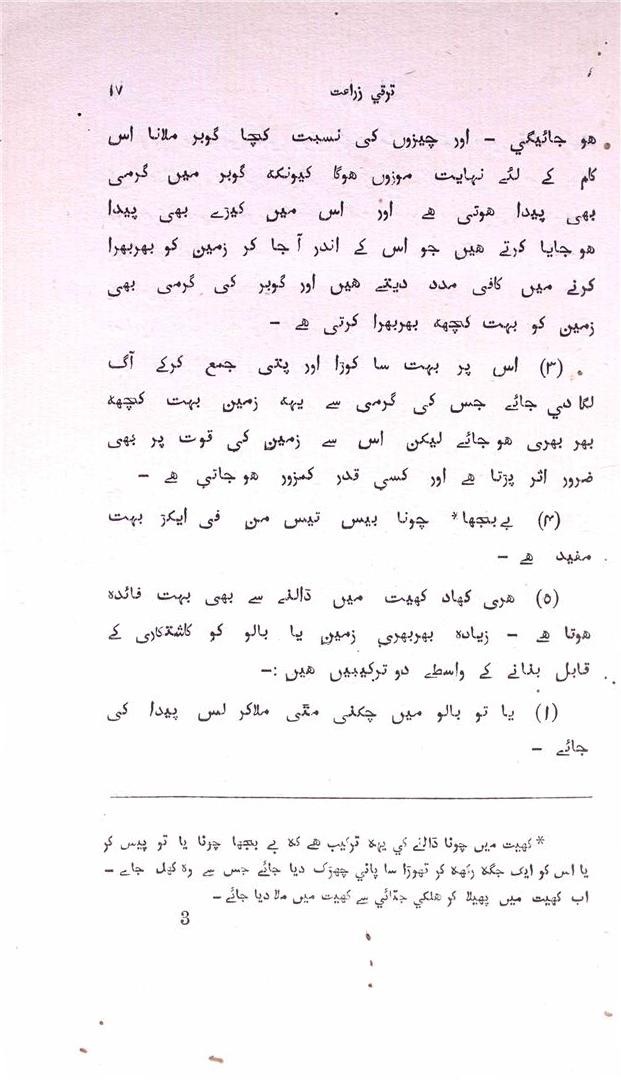 ترقي زراعت ۱۷
هو جائیگي — اور چیزوں کی نسبت کچا گوبر ملانا اس
کام کے لئے نہایت موزوں هوگا کیونکہ گوبر میں گرمی
بھی پیدا هوتی هے اور اس میں کیڑے بھی پیدا
هو جایا کرتے هیں جو اس کے اندر آ جا کر زمین کو بھربھرا
کرنے میں کافی مدد دیتے هیں اور گوبر کی گرمی بھی
زمین کو بہت کچھہ بھربھرا کرتی هے —
(۳) اس پر بہت سا کوڑا اور پتی جمع کرکے آگ
لگا دي جائے جس کی گرمی سے یہہ زمین بہت کچھہ
بھر بھری هو جائے لیکن اس سے زمین کی قوت پر بھی
ضرور اثر پڑتا هے اور کسي قدر کمزور هو جاتي هے —
(۴) بےبجھا* چونا بیس تیس من فی ایکڑ بہت
مفید هے —
(۵) هری کھاد کھیت میں ڈالنے سے بھی بہت فائدہ
هوتا هے — زیادہ بھربھري زمین یا بالو کو کاشتکاری کے
قابل بنانے کے واسطے دو ترکیبیں هیں :—
(۱) یا تو بالو میں چکنی مٹی ملاکر لس پیدا کی
جائے —
* کھیت میں چونا ڈالنے کي یہہ ترکیب هے کہ بے بجھا چونا یا تو پیس کر
یا اس کو ایک جگہ رکھہ کر تھوڑا سا پاني چھڑک دیا جائے جس سے وہ کھل جاے —
اب کھیت میں پھیلا کر هلکي جتائي سے کھیت میں ملا دیا جائے —
3